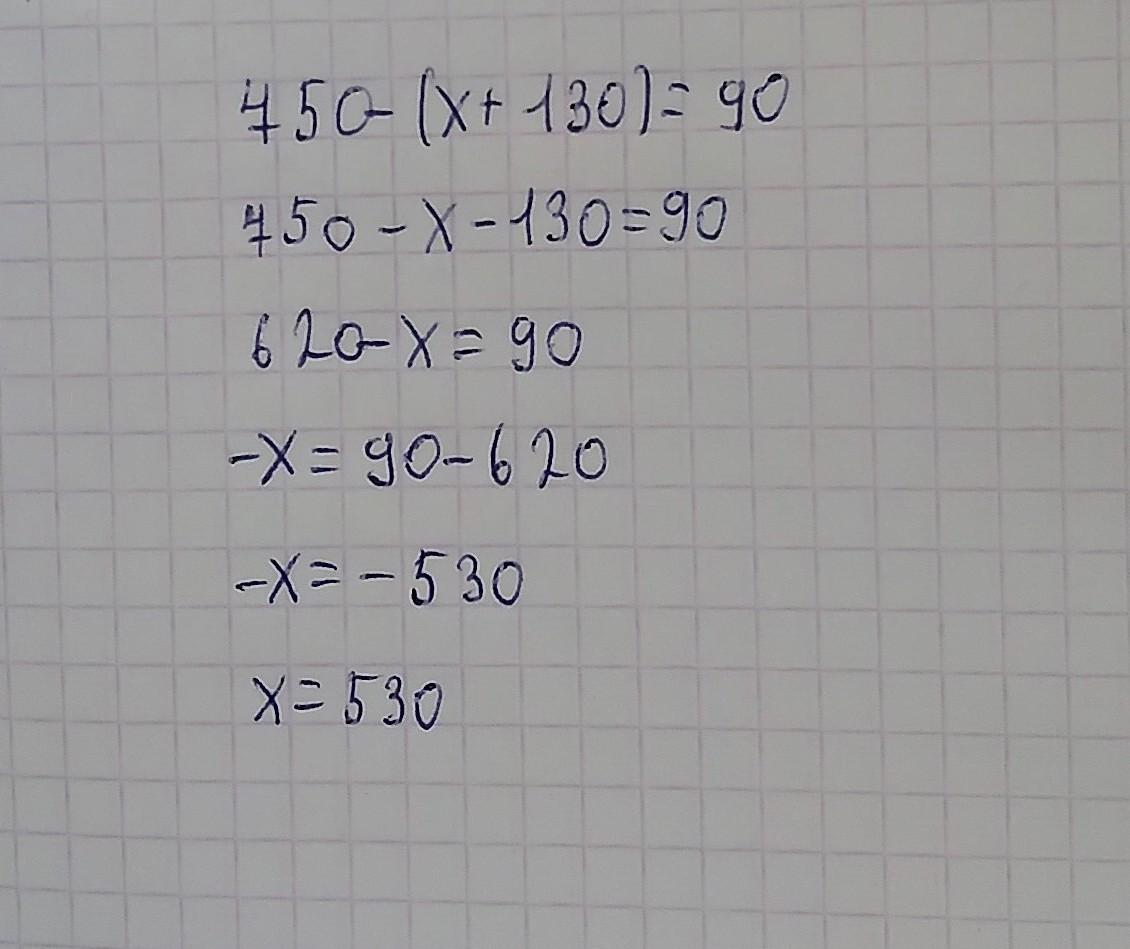 750-(x+130)=90
750-x-130=90
620-x=90
-x=90-620
-x=-530
x=530